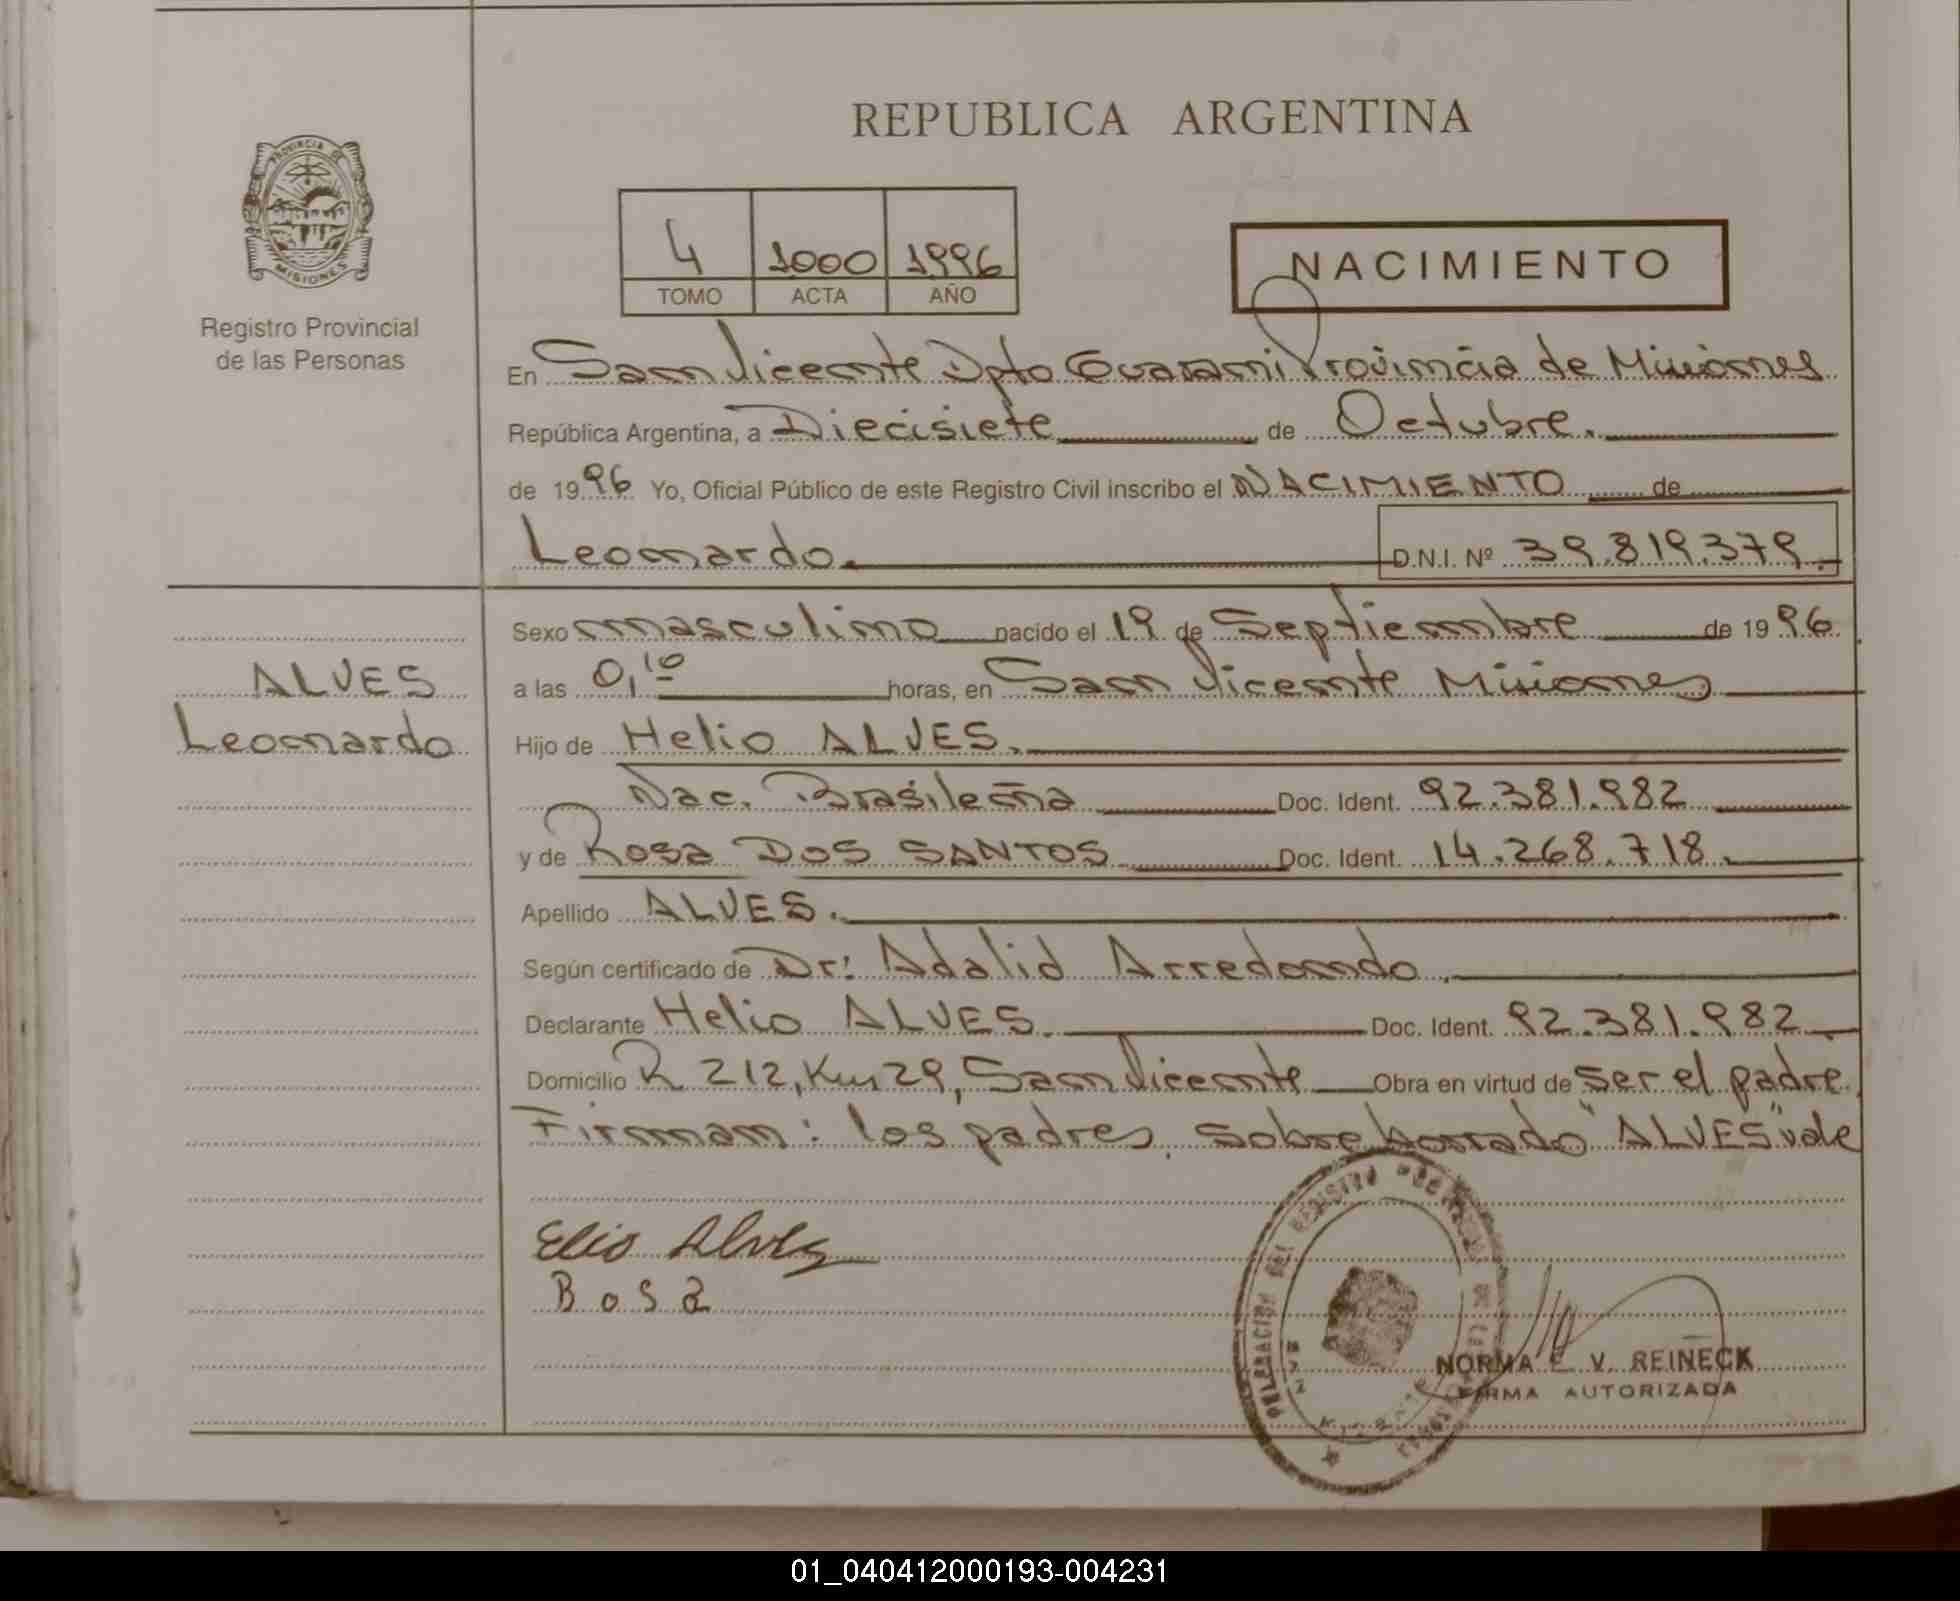 REPUBLICA ARGENTINA
PROVINCIA DE
MISIONES
Registro Provincial
de las Personas
4 1000 1996
TOMO ACTA AÑO
NACIMIENTO
En San Vicente Dpto Guarani Provincia de Misiones
República Argentina, a Diecisiete de Octubre.
de 1996 Yo, Oficial Público de este Registro Civil inscribo el NACIMIENTO de
Leonardo. D.N.I. Nº 39.819.379.
Sexo masculino nacido el 19 de Septiembre de 1996.
ALVES
Leonardo
a las 0,10 horas, en San Vicente Misiones
Hijo de Helio ALVES.
Nac. Brasileña Doc. Ident. 92.381.982
y de Rosa DOS SANTOS Doc. Ident. 14.268.718.
Apellido ALVES.
Según certificado de Dr: Adalid Arredondo.
Declarante Helio ALVES. Doc. Ident. 92.381.982.
Domicilio R 212, Km 29, San Vicente Obra en virtud de ser el padre.
Firman: los padres. Sobre borrado "ALVES" vale
Elio Alves
Bosa
DELEGACION DEL REGISTRO
NORMA E. V. REINECK
FIRMA AUTORIZADA
01_040412000193-004231